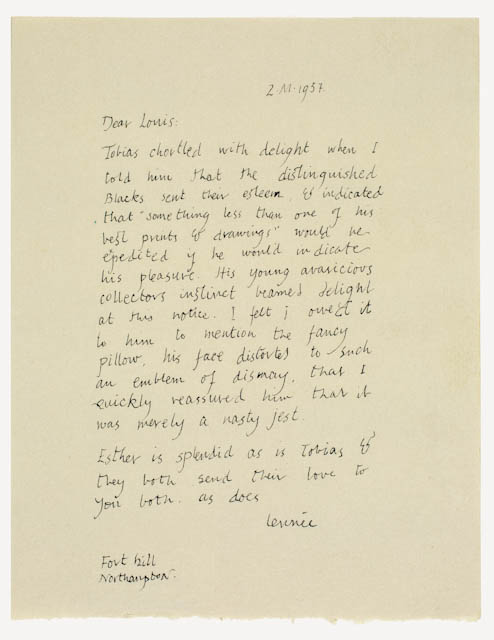 2.M.1957.
Dear Louis:
Tobias chortled with delight when I
told him that the distinguished
Blacks sent their esteem, & indicated
that "something less than one of his
best prints & drawings" would be
expedited if he would indicate
his pleasure. His young avaricious
collectors instinct beamed delight
at this notice. I felt I owed it
to him to mention the fancy
pillow, his face distorted to such
an emblem of dismay, that I
quickly reassured him that it
was merely a nasty jest.
Esther is splendid as is Tobias &
they both send their love to
you both. as does
Fort hill
Northampton.